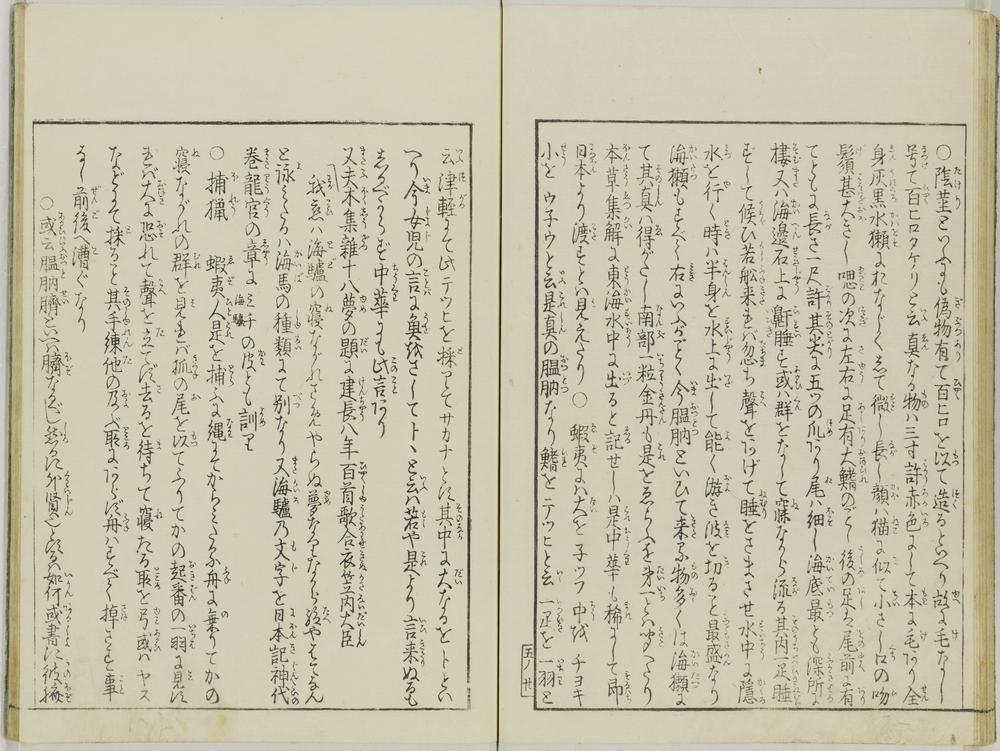 ○陰茎といふにも偽物有て百ヒロを以て造るといへり故に毛なし
号て百ヒロタケリと云真なる物ハ三寸許赤色にして本に毛あり全
身灰黒水獺に似てながくゑて微し長し顔ハ猫に似て小さし口の吻
鬚甚大きし咽の次に左右に足有大鰭のごとし後の足ハ尾前に有
てともに長さ一尺許其尖に五ツの爪あり尾ハ細し海底最も深所に
棲又ハ海邊石上に鼾睡し或ハ群をなして寐ながら流る其内一疋睡
ずして候ひ若舩来れバ忽ち聲をあげて睡をさまさせ水中に隠
水を行く時ハ半身を水上に出して能く游き波を切ること最盛なり
海獺もすべて右にいふがごとく今膃肭といひて来る物多くは海獺に
て其真ハ得がたし南部一粒金丹も是をゑらふを才一とハするなり
本草集解に東海水中に出ると記せしハ是中華にも稀にして即
日本より渡すことハ見えたり○蝦夷にハ大を子ツフ中をチヨキ
小をウ子ウと云是真の膃肭なり鰭をテツヒと云一疋を一羽と
五ノ廿
云津軽にて此テツヒを採りてサカナとす其中に大なるをトトといへり
今女児の言に奥をさしてトヽと云ハ若や是より言来ぬるも
しるべからず中華にも此言あり
又夫木集雑十八夢の題に建長八年百首歌合衣笠内大臣
「我恋ハ海驢の寝ながれさめやらぬ夢なりながら絶やはてなん
と詠ミたるハ海馬の種類にて別なり又海驢乃文字を日本記神代
巻龍宮の章に海驢ミチの皮とも訓り
○捕獵 蝦夷人是を捕ふに縄にてからミたる舟に乗りてかの
寝ながれの群を見れバ狐の尾を以てふりてかの起番の羽に見す
れバ大に恐れて聲をたてず去るを待ちて寝たる所をうち或ハヤス
などにて採ること其手練他の及ぶ所にあらず舟ハすべて掉さす事
なし前後へ漕ぐなり
○或云膃肭臍といへバ臍なるべし